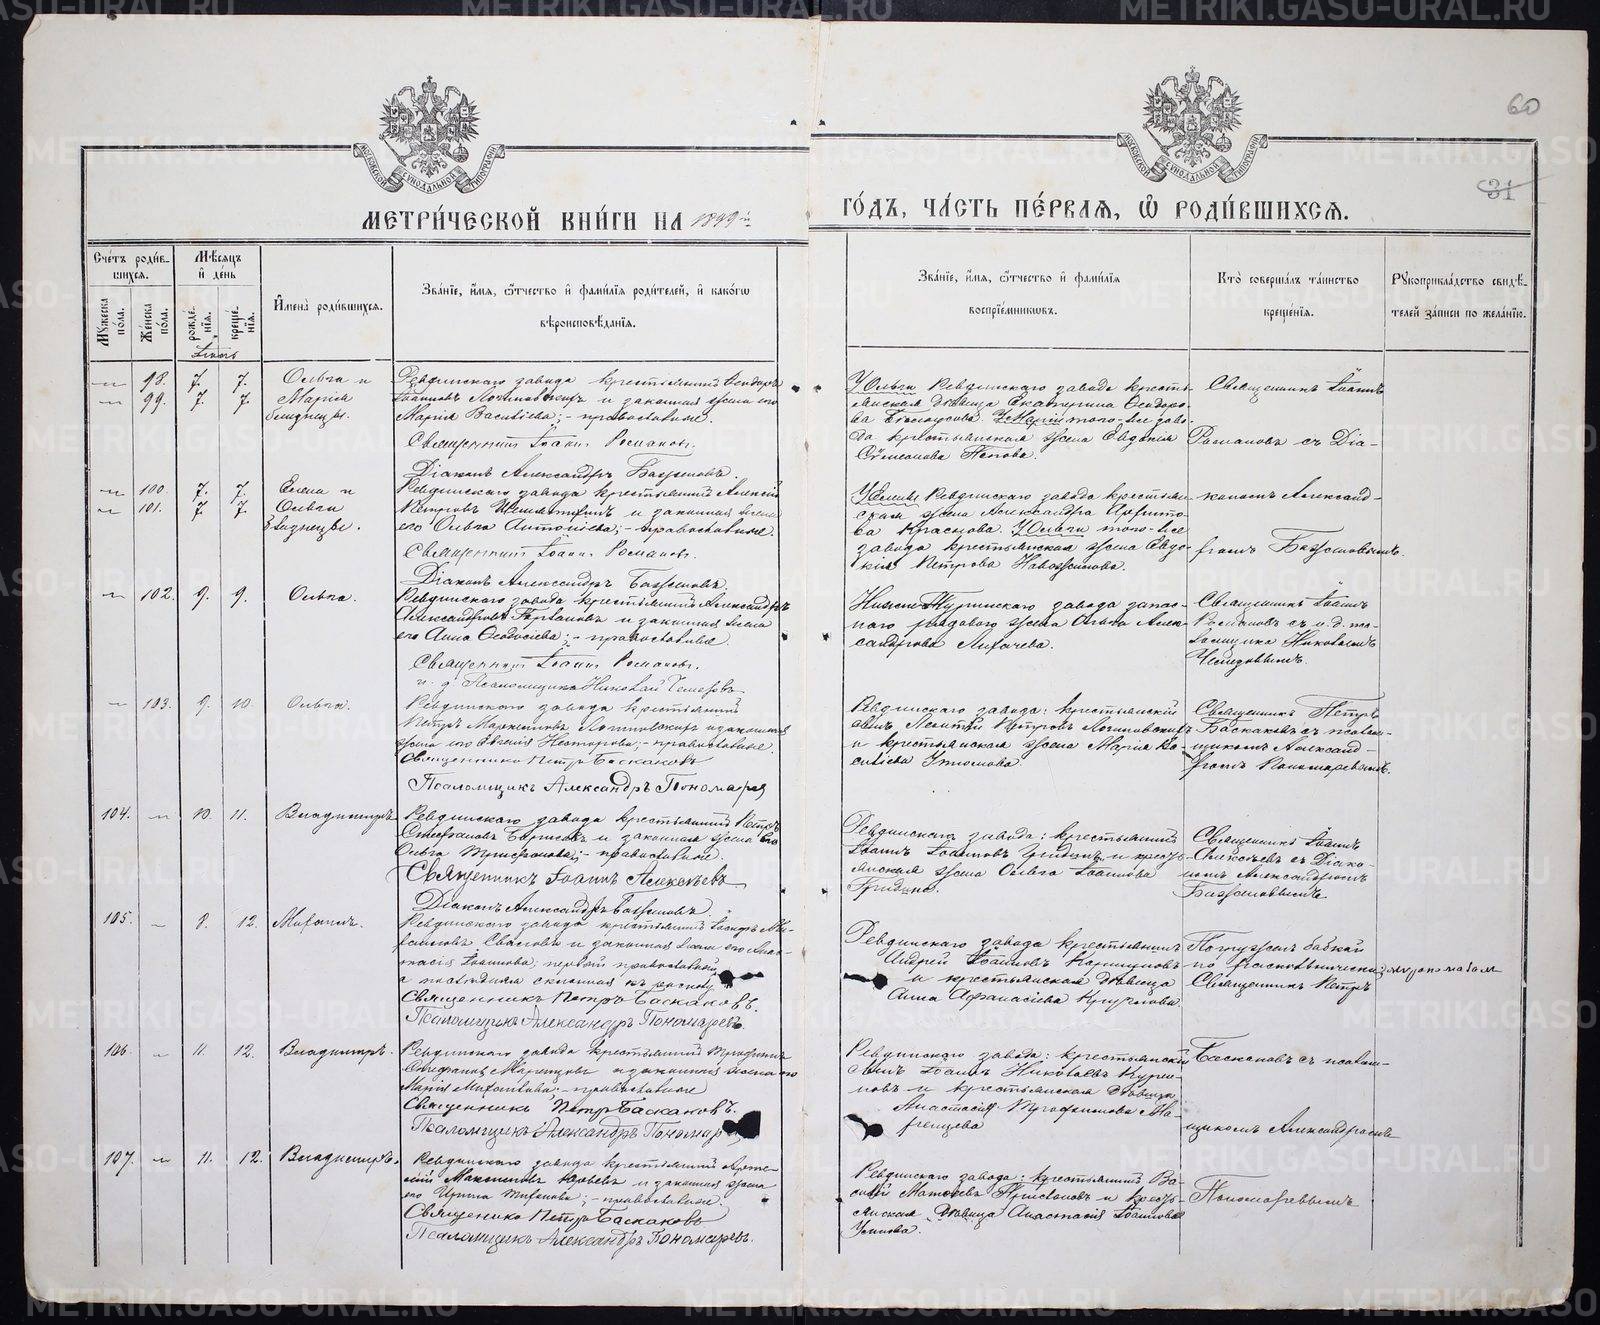 60
31
МОСКОВСКОЙ СѴНОДАЛЬНОЙ ТИПОГРАФІИ
МОСКОВСКОЙ СѴНОДАЛЬНОЙ ТИПОГРАФІИ
МЕТРИ́ЧЕСКОЙ КНИ́ГИ НА 1899й
ГО́ДЪ, ЧА́СТЬ ПЕ́РВАЯ, Ѡ҆ РОДИ́ВШИХСЯ.
Сче́тъ роди́вшихся.
Мꙋ́жеска по́ла.
Же́нска по́ла.
Мѣ́сяцъ и҆ де́нь
рожде́нїя.
креще́нїя.
Іюль
И҆мена̀ роди́вшихся.
Зва́нїе, и҆́мя, ѻ҆́тчество и҆ фами́лїя роди́телей, и҆ како́гѡ
вѣроисповѣ́данїя.
Зва́нїе, и҆́мя, ѻ҆́тчество и҆ фами́лїя
воспрїе́мниковъ.
Кто̀ соверша́лъ та́инство
креще́нїя.
Рꙋкоприкла́дство свидѣ́телей за́писи по жела́нїю.
98. 7. 7. Ольга и
99. 7. 7. Марія
близнецы.
Ревдинскаго завода крестьянинъ Ѳеодоръ
Іоанновъ и законная жена его
Марія Васильева; - православные.
Священникъ Іоаннъ Романовъ.
Діаконъ Александръ Бажановъ.
У Ольги Ревдинскаго завода кресть-
янская дѣвица Екатерина Ѳеодоро-
ва Бѣлоусова У Маріи того-же заво-
да крестьянская жена Евдокія
Сѵмеонова Попова.
Священникъ Іоаннъ
Романовъ съ Діа-
100. 7. 7. Елена и
101. 7. 7. Ольга
близнецы.
Ревдинскаго завода крестьянинъ Алексій
Петровъ и законная жена
его Ольга Антоніева; - православные.
Священникъ Іоаннъ Романовъ.
Діаконъ Александръ Бажановъ.
У Елены Ревдинскаго завода крестьян-
ская жена Александра
Краснова. У Ольги того-же
завода крестьянская жена Евдо-
кія Петрова Новожилова.
кономъ Александ-
ромъ Бажановымъ.
102. 9. 9. Ольга.
Ревдинскаго завода крестьянинъ Александръ
Александровъ и законная жена
его Анна Ѳеодосіева; - православные
Священникъ Іоаннъ Романовъ.
и. д. Псаломщика Николай
Нижне-Туринскаго завода запас-
наго рядового жена Ольга Алек-
сандрова Лихачева.
Священникъ Іоаннъ
Романовъ съ и. д. пса-
ломщика Николаемъ
103. 9. 10. Ольга.
Ревдинскаго завода крестьянинъ
Петръ и законная
жена его Евгенія Несторова; - православные
Священникъ Петръ Баскаковъ
Псаломщикъ Александръ Пономарев
Ревдинскаго завода: крестьянскій
сынъ Петровъ
и крестьянская жена Марія Ва-
сильева
Священникъ Петръ
Баскаковъ съ псалом-
щикомъ Александ-
ромъ Пономаревымъ.
104. 10. 11. Владимиръ
Ревдинскаго завода крестьянинъ Петръ
Стефановъ Борисовъ и законная жена его
Ольга Трифонова; - православные.
Священникъ Іоаннъ Алексѣевъ
Діаконъ Александръ Бажановъ.
Ревдинскаго завода: крестьянинъ
Іоаннъ Іоанновъ и кресть-
янская жена Ольга Іоаннова
Священникъ Іоаннъ
Алексѣевъ съ Діако-
номъ Александромъ
Бажановымъ
105. 8. 12.
Ревдинскаго завода крестьянинъ
и законная жена его Анас-
тасія Іоаннова; первый православный
а послѣдняя склонная къ расколу
Священникъ Петръ Баскаковъ.
Псаломщикъ Александръ Пономаревъ.
Ревдинскаго завода крестьянинъ
Андрей Іоанновъ
и крестьянская дѣвица
Анна Афанасіева Круглова.
Погруженъ бабкой
по раскольнически;
Священникъ Петръ
106. 11. 12. Владимиръ.
Ревдинскаго завода крестьянинъ Трофимъ
и законная жена его
Марія; - православные
Священникъ Петръ Баскаковъ.
Псаломщикъ Александръ Пономар
Ревдинскаго завода: крестьянскій
сынъ Іоаннъ Николаевъ
и крестьянская дѣвица
Анастасія Трофимова
Баскаковъ съ псалом-
щикомъ Александромъ
107. 11. 12. Владимиръ.
Ревдинскаго завода крестьянинъ
Максимовъ и законная жена
его Ирина; - православные.
Священникъ Петръ Баскаковъ
Псаломщикъ Александръ Пономаревъ.
Ревдинскаго завода: крестьянинъ Ва-
силій и кресть-
янская дѣвица Анастасія Іоаннова
Пономаревымъ